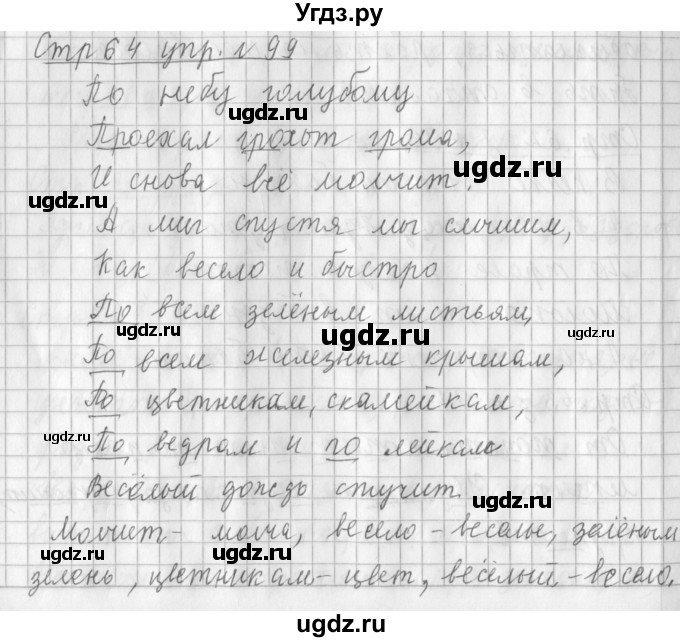 Угдз.ру
Стр 64 упр. № 99
По небу голубому
ugdz.ru
Проехал грохот грома,
ugdz.ru
И снова всё молчит.
ugdz.ru
А миг спустя мы слышим,
Как весело и быстро
ugdz.ru
По всем зелёным листьям,
ugdz.ru
По всем железным крышам,
ugdz.ru
По цветникам, скамейкам,
ugdz.ru
По ведрам и по лейкам
Весёлый дождь стучит.
ugdz.ru
Молчит - молча, весело - веселье, зелёным
ugdz.ru
зелень, цветникам - цвет, весёлый - весело.
ugdz.ru